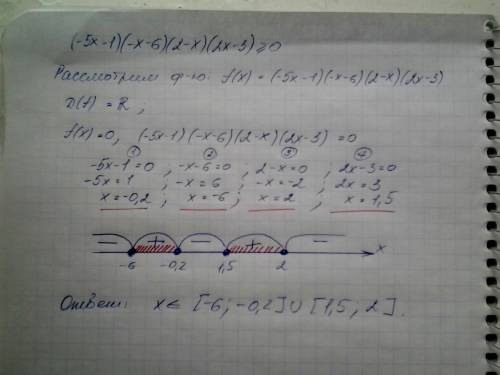 (-5x-1)(-x-6)(2-x)(2x-3)≥0
Рассмотрим ф-ю: f(x) = (-5x-1)(-x-6)(2-x)(2x-3)
D(f) = R,
f(x)=0, (-5x-1)(-x-6)(2-x)(2x-3) = 0
① ② ③ ④
-5x-1=0 ; -x-6=0 ; 2-x=0 ; 2x-3=0
-5x=1 ; -x=6 ; -x=-2 ; 2x=3
x=-0,2 ; x=-6 ; x=2 ; x=1,5
— + — + — x
-6 -0,2 1,5 2
Ответ: x ∈ [-6; -0,2] ∪ [1,5; 2].